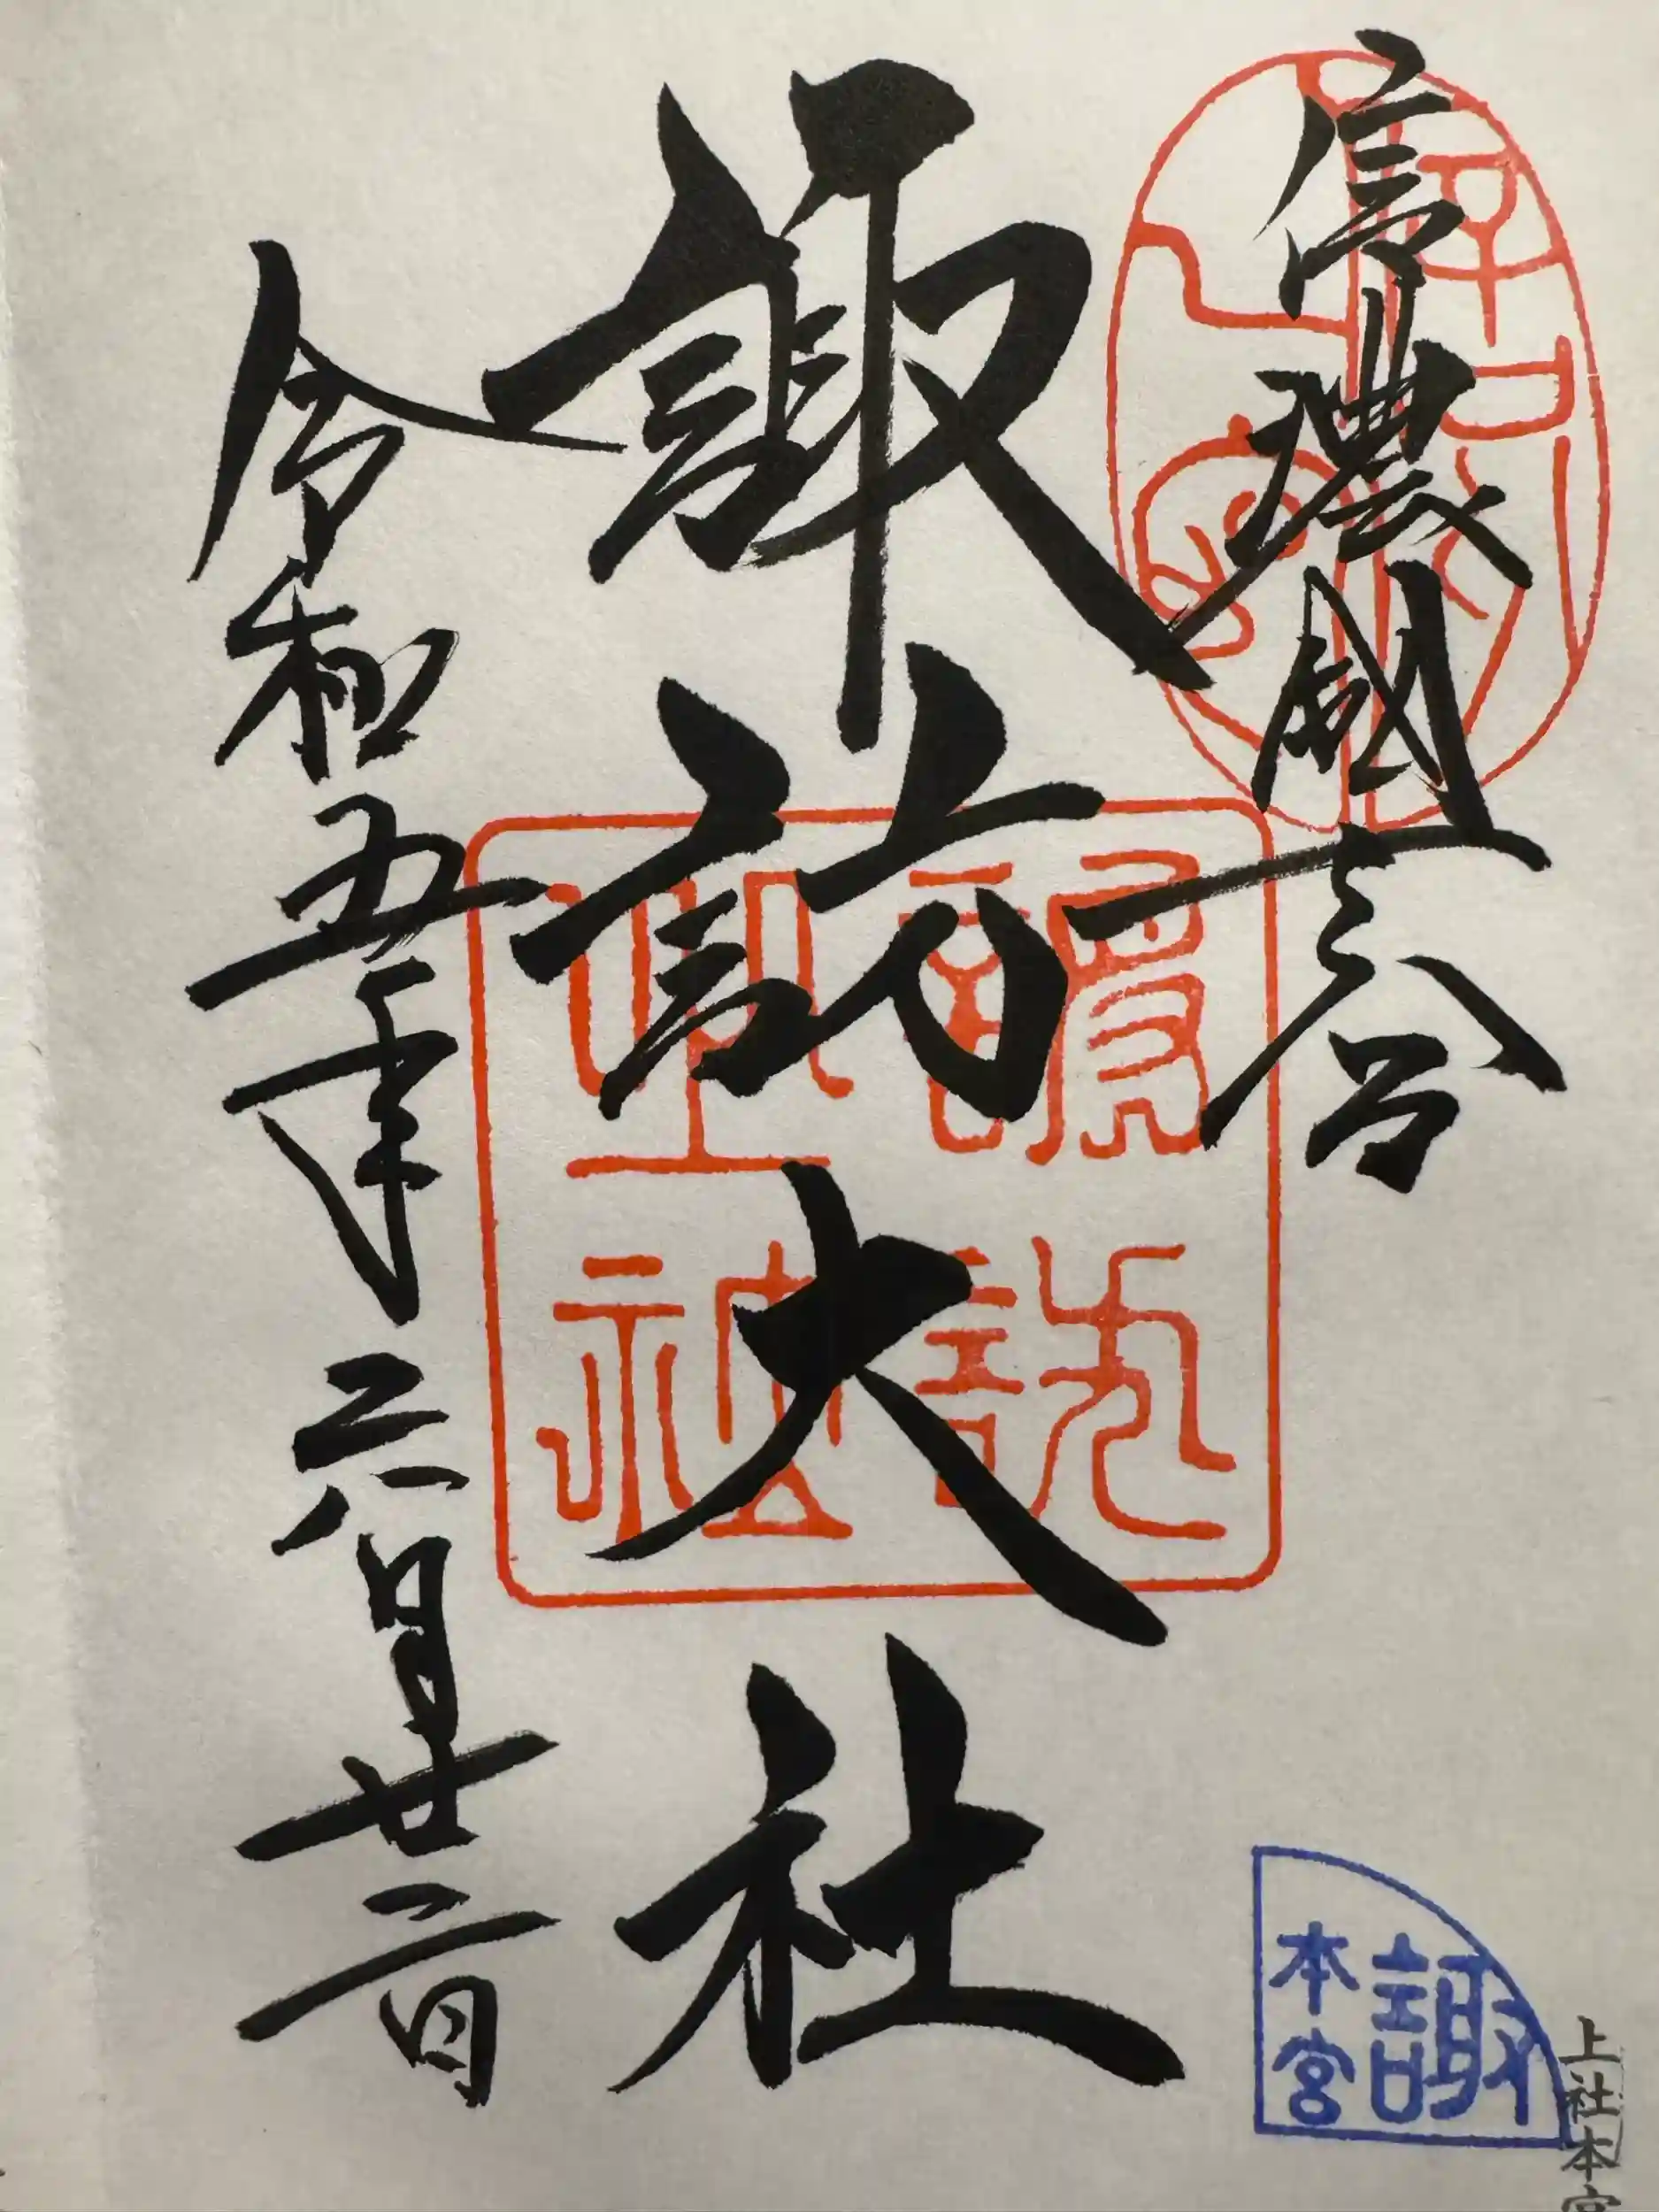 信濃國一之宮
諏訪大社
令和五年六月廿二日
諏
本宮
上社本宮